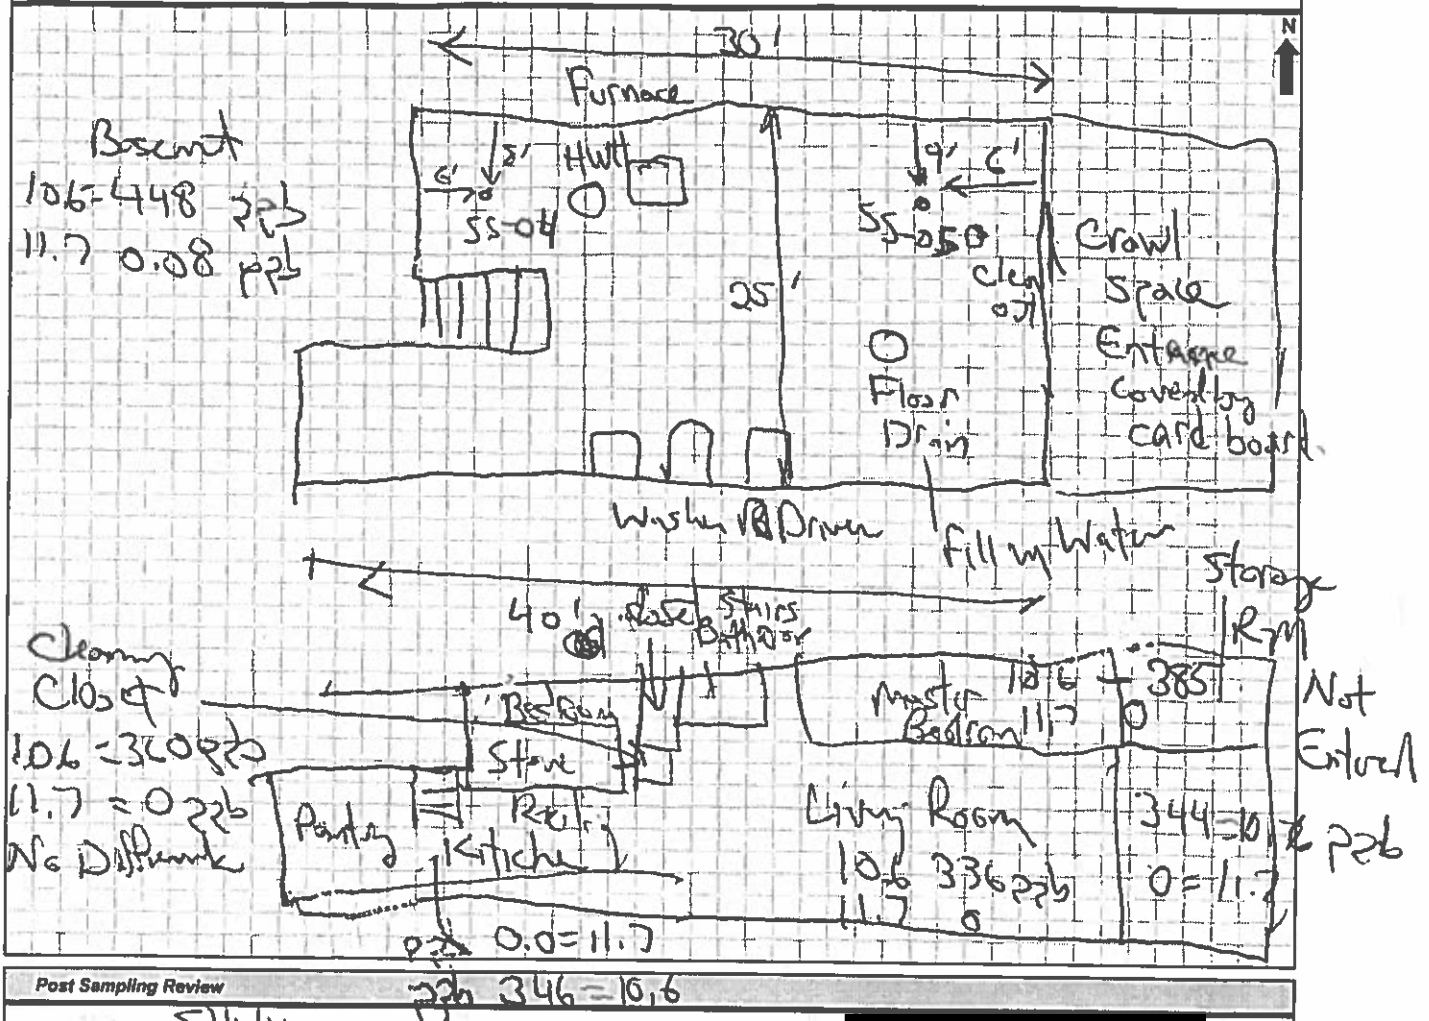 N
30'
Furnace
Basemnt
10.6=448 ppb
11.7 0.08 ppb
6'
5'
HWH
SS-04
9'
6'
SS-05
Clean
out
25'
Crawl
Space
Entrance
Covered by
card board.
Floor
Drain
Washer & Dryer
Fill w/ Water
Storage
Rm
Not
Entered
40'
Stairs
Bathroom
Cleaning
Closet
10.6=360 ppb
11.7 = 0 ppb
No Difference
Stove
Pantry
Kitchen
Master
Bedroom
10.6 - 385
11.7 0
Living Room
10.6 336 ppb
11.7 0
344=10.6 ppb
0=11.7
ppb 0.0=11.7
ppb 346=10.6
Post Sampling Review